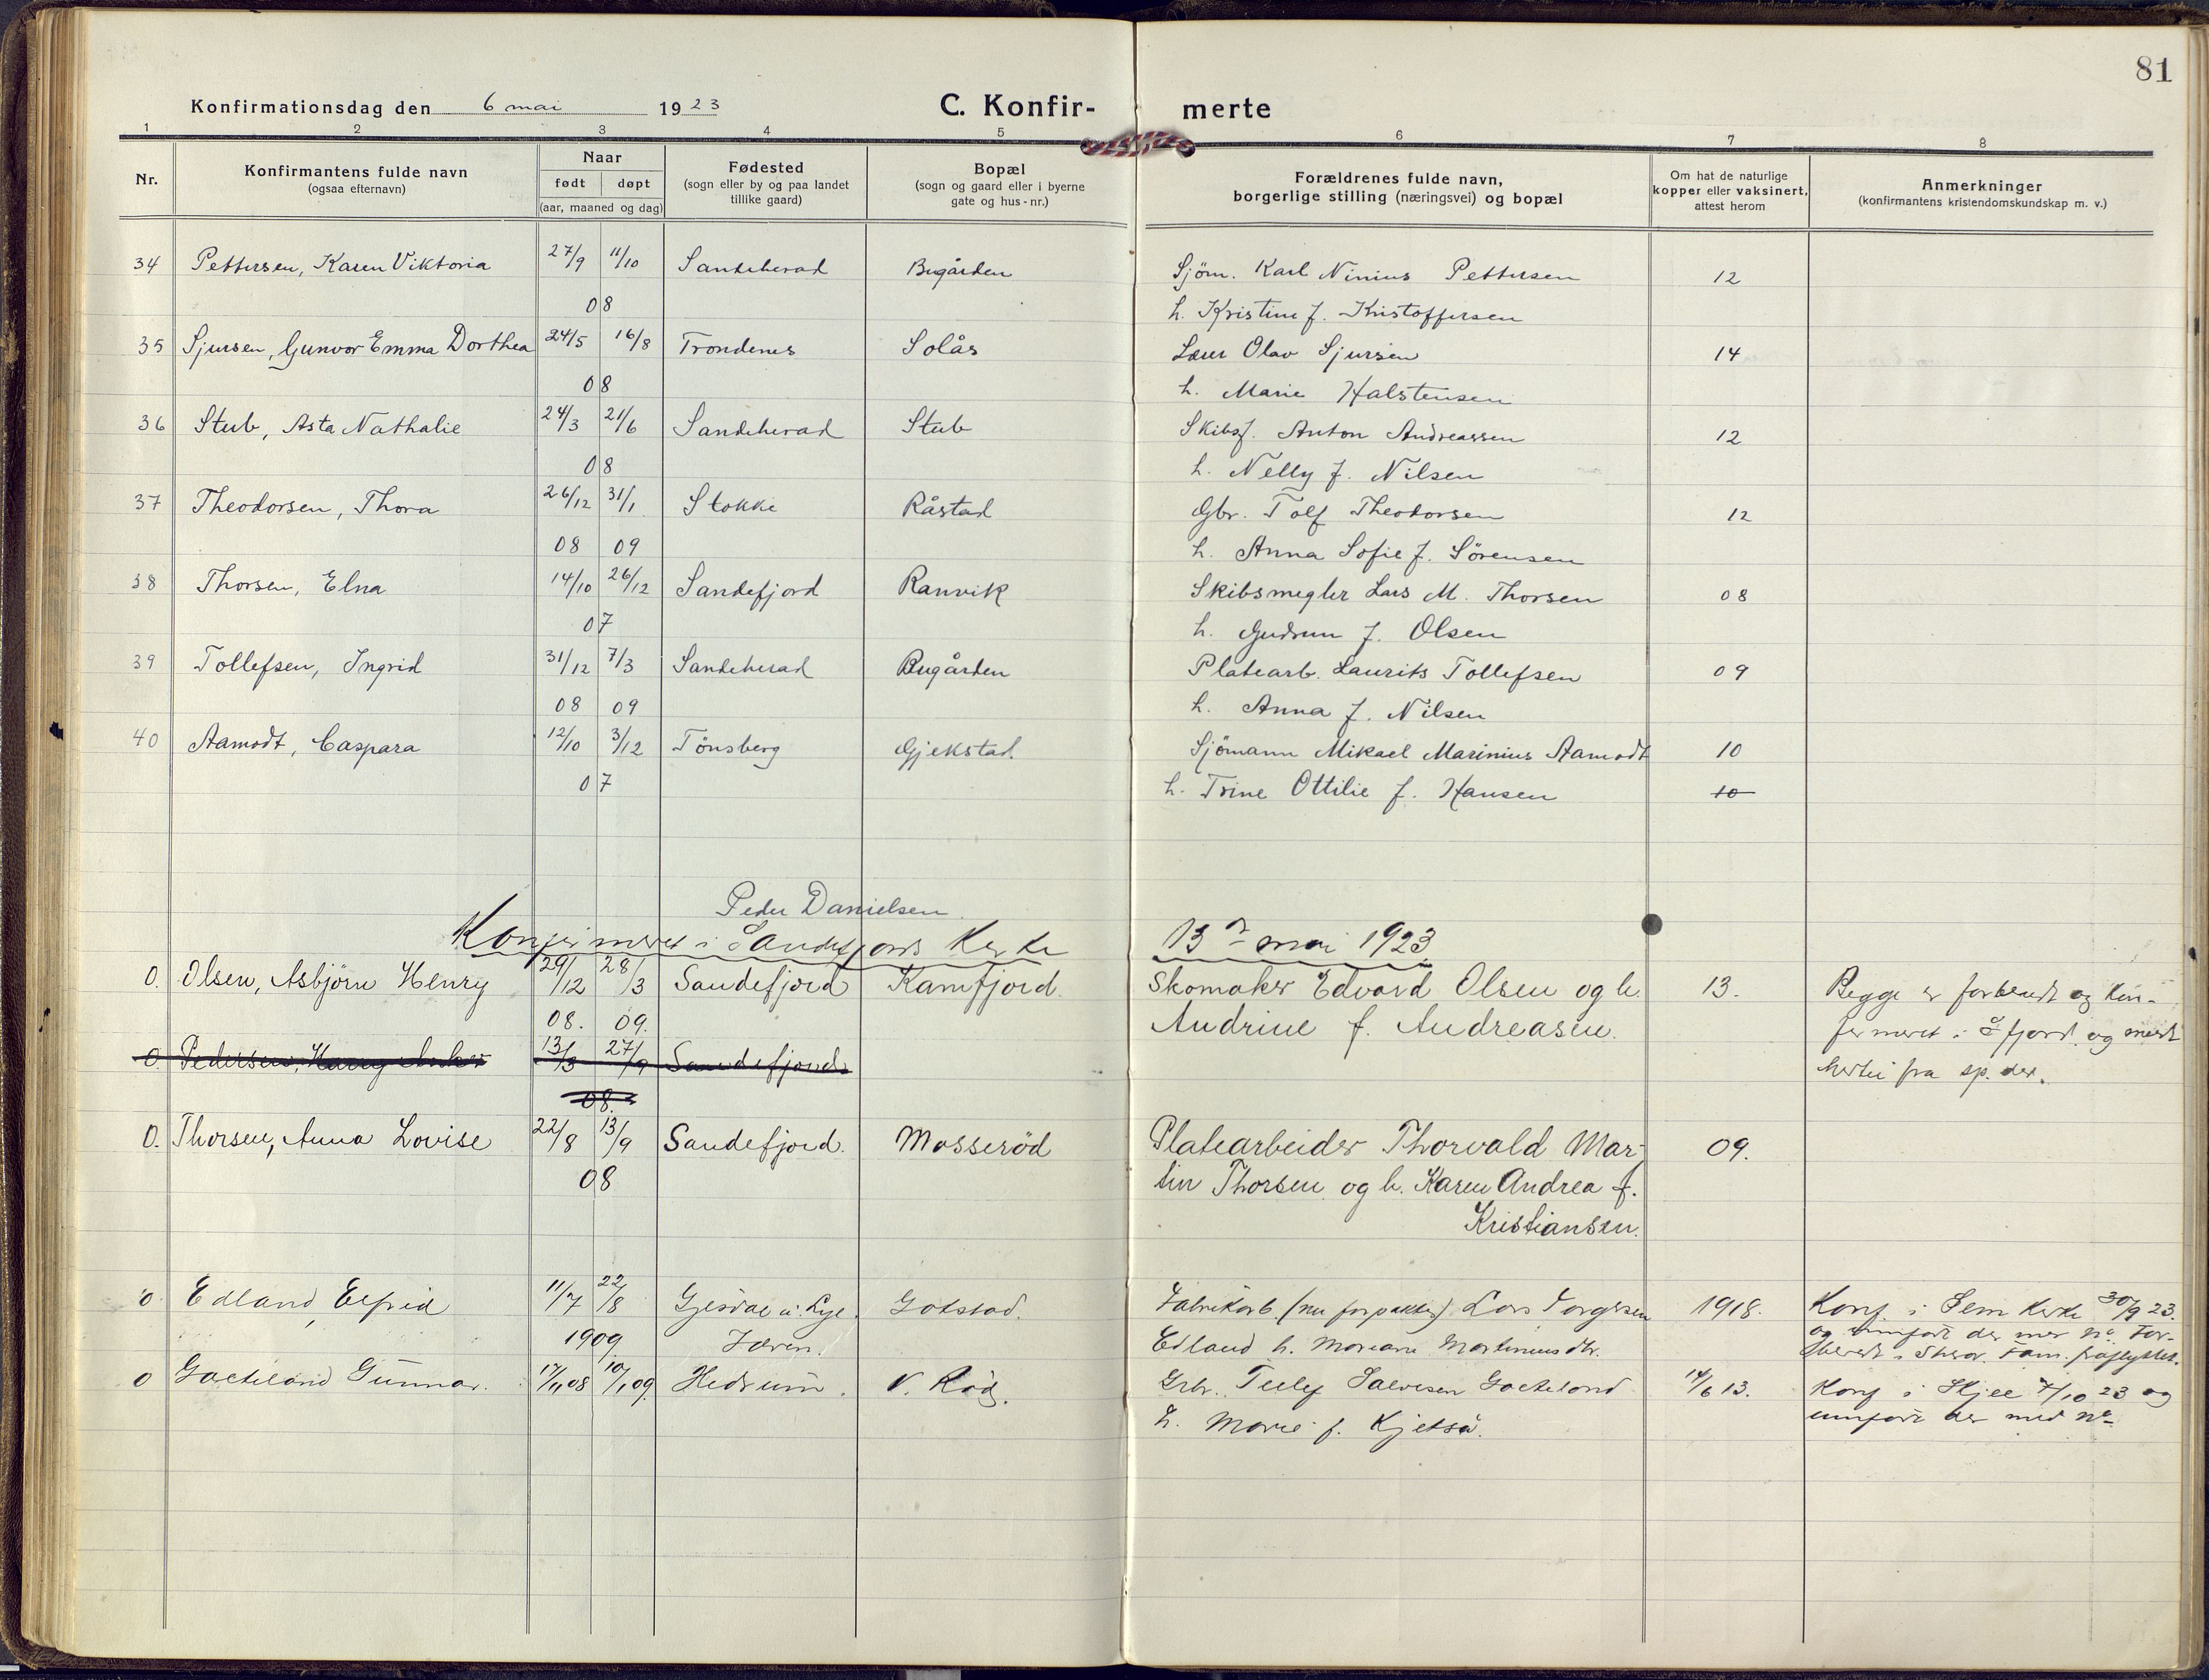 81
Konfirmationsdag den 6 mai 1923 C. Konfir- merte
1 2 3 4 5 6 7 8
Nr. Konfirmantens fulde navn (ogsaa efternavn) Naar født døpt (aar, maaned og dag) Fødested (sogn eller by og paa landet tillike gaard) Bopæl (sogn og gaard eller i byerne gate og hus-nr.) Forældrenes fulde navn, borgerlige stilling (næringsvei) og bopæl Om hat de naturlige kopper eller vaksinert, attest herom Anmerkninger (konfirmantens kristendomskundskap m. v.)
34 Pettersen, Karen Viktoria 27/9 11/10 Sandeherad Bugården Sjöm. Karl Ninius Pettersen 12
08 h. Kristine f. Kristoffersen
35 Sjursen, Gunvor Emma Dorthea 24/5 16/8 Trondenes Solås Lærer Olav Sjursen 14
08 h. Marie Halstensen
36 Stub, Asta Nathalie 24/3 21/6 Sandeherad Stub Skibsf. Anton Andreassen 12
08 h. Nelly f. Nilsen
37 Theodorsen, Thora 26/12 31/1 Stokke Råstad Gbr. Tolf Theodorsen 12
08 09 h. Anna Sofie f. Sörensen
38 Thorsen, Elna 14/10 26/12 Sandefjord Ranvik Skibsmegler Lars M. Thorsen 08
07 h. Gudrun f. Olsen
39 Tollefsen, Ingrid 31/12 7/3 Sandeherad Bugården Platearb. Laurits Tollefsen 09
08 09 h. Anna f. Nilsen
40 Aamodt, Caspara 12/10 3/12 Tönsberg Gjekstad. Sjömann Mikael Marinius Aamodt 10
07 h. Trine Ottilie f. Hansen 10
Peder Danielsen
Konfirmeret i Sandefjords Kirke 13de mai 1923
0. Olsen, Asbjörn Henry 29/12 28/3 Sandefjord Kamfjord. Skomaker Edvard Olsen og h. 13. Begge er forberedt og kon-
08. 09. Andrine f. Andreasen. firmeret i Sfjord. og
0. Pedersen, Harry 13/3 27/9 Sandefjord fra sp. der.
08.
0. Thorsen, Anna Lovise 22/8 13/9 Sandefjord. Mosseröd Platearbeider Thorvald Mar- 09.
08 tin Thorsen og h. Karen Andrea f.
Kristiansen.
0 Edland, Elfrid 11/7 22/8 Gjesdal Fabrikarb. (nu forpakter) Lars Torgersen 1918. Konf. i Sem Kirke 30/9 23.
1909 Jæren. Edland h. Mariane Martiniusdtr. og innfört der med no. For-
beredt i Fam. fraflyttet.
0 Gunnar. 17/11 08 10/1 09 Hedrum. V. Röd. Grbr. 14/6 13. Konf i Skjee 7/10 23 og
h. Marie f. Kjetså. innfört der med no